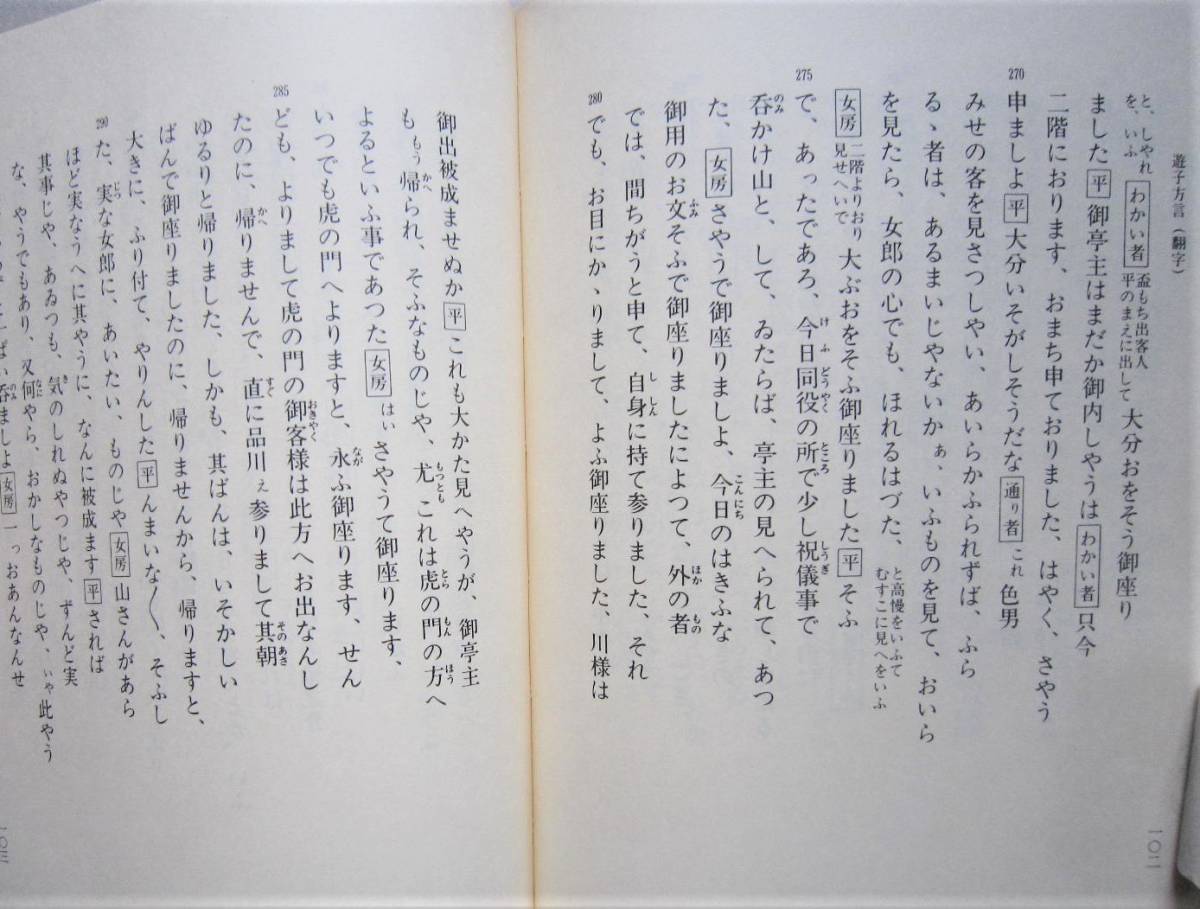 遊子方言(翻字)
と、しやれを、いふ わかい者 盃もち出客人平のまえに出して 大分おをそう御座り
ました 平 御亭主はまだか御内しやうは わかい者 只今
二階におります、おまち申ておりました、はやく、さやう
270 申ましよ 平 大分いそがしそうだな 通り者 これ 色男
みせの客を見さつしやい、あいらかふられずば、ふら
るゝ者は、あるまいじやないかぁ、いふものを見て、おいら
を見たら、女郎の心でも、ほれるはづた、と高慢をいふてむすこに見へをいふ
女房 二階よりおり見せへいで 大ぶおをそふ御座りました 平 そふ
275 で、あったであろ、今日同役の所で少し祝儀事で
呑かけ山と、して、ゐたらば、亭主の見へられて、あつ
た、 女房 さやうで御座りましよ、今日のはきふな
御用のお文そふで御座りましたによつて、外の者
では、間ちがうと申て、自身に持て参りました、それ
280 でも、お目にかゝりまして、よふ御座りました、川様は
一〇二
御出被成ませぬか 平 これも大かた見へやうが、御亭主
も、もう帰られ、そふなものじや、尤これは虎の門の方へ
よるといふ事であつた 女房 はい さやうて御座ります、
いつでも虎の門へよりますと、永ふ御座ります、せん
285 ども、よりまして虎の門の御客様は此方へお出なんし
たのに、帰りませんで、直に品川ぇ参りまして其朝
ゆるりと帰りました、しかも、其ばんは、いそかしい
ばんで御座りましたのに、帰りませんから、帰りますと、
大きに、ふり付て、やりんした 平 んまいな〱、そふし
290 た、実な女郎に、あいたい、ものじや 女房 山さんがあら
ほど実なうへに其やうに、なんに被成ます 平 されば
其事じや、あゐつも、気のしれぬやつじや、ずんど実
な、やうでもあり、又何やら、おかしなものじや、いや此やう
ば い呑ましよ 女房 っおあんなんせ
一〇三